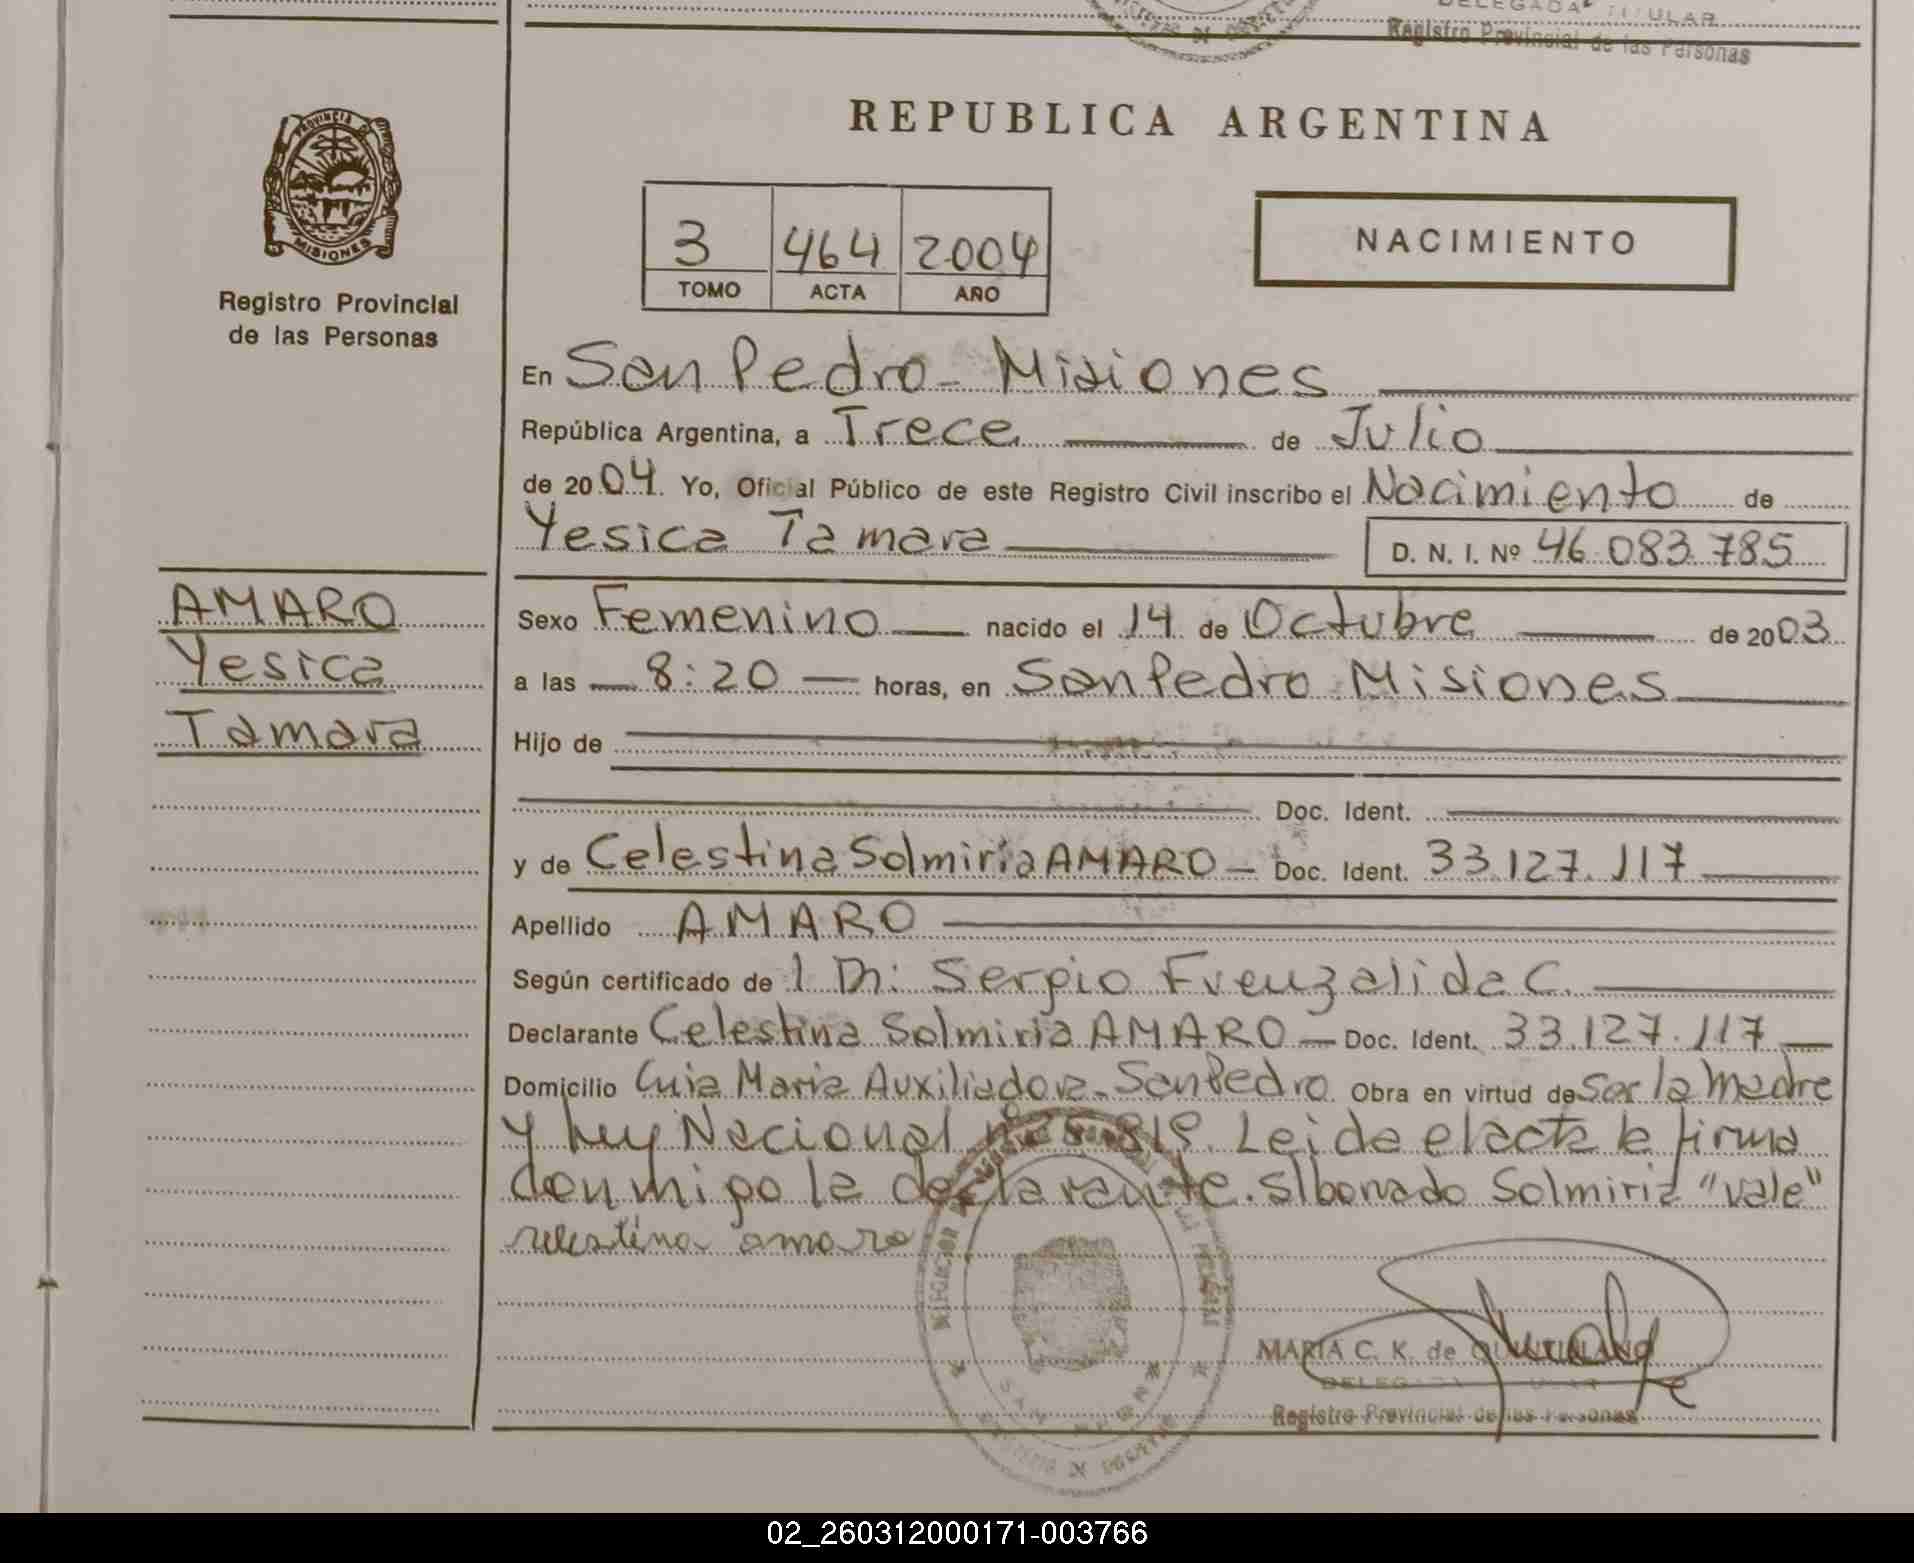 DELEGADA TITULAR
Registro Provincial de las Personas
REPUBLICA ARGENTINA
PROVINCIA DE
MISIONES
Registro Provincial
de las Personas
3 464 2004
TOMO ACTA AÑO
NACIMIENTO
En San Pedro - Misiones
República Argentina, a Trece de Julio
de 2004. Yo, Oficial Público de este Registro Civil inscribo el Nacimiento de
Yesica Tamara D. N. I. Nº 46.083.785
AMARO
Yesica
Tamara
Sexo Femenino nacido el 14 de Octubre de 2003
a las 8:20 horas, en San Pedro Misiones
Hijo de
Doc. Ident.
y de Celestina Solmiria AMARO - Doc. Ident. 33.127.117
Apellido AMARO
Según certificado de Sergio C.
Declarante Celestina Solmiria AMARO - Doc. Ident. 33.127.117
Domicilio Maria Auxiliadora - San Pedro Obra en virtud de Ser la Madre
y Ley Nacional nº Leida el acta la firma
conmigo la declarante. S/borrado Solmiria "vale"
celestina amaro
MARIA C. K. de QUINTILIANO
DELEGADA TITULAR
Registro Provincial de las Personas
SAN PEDRO
02_260312000171-003766